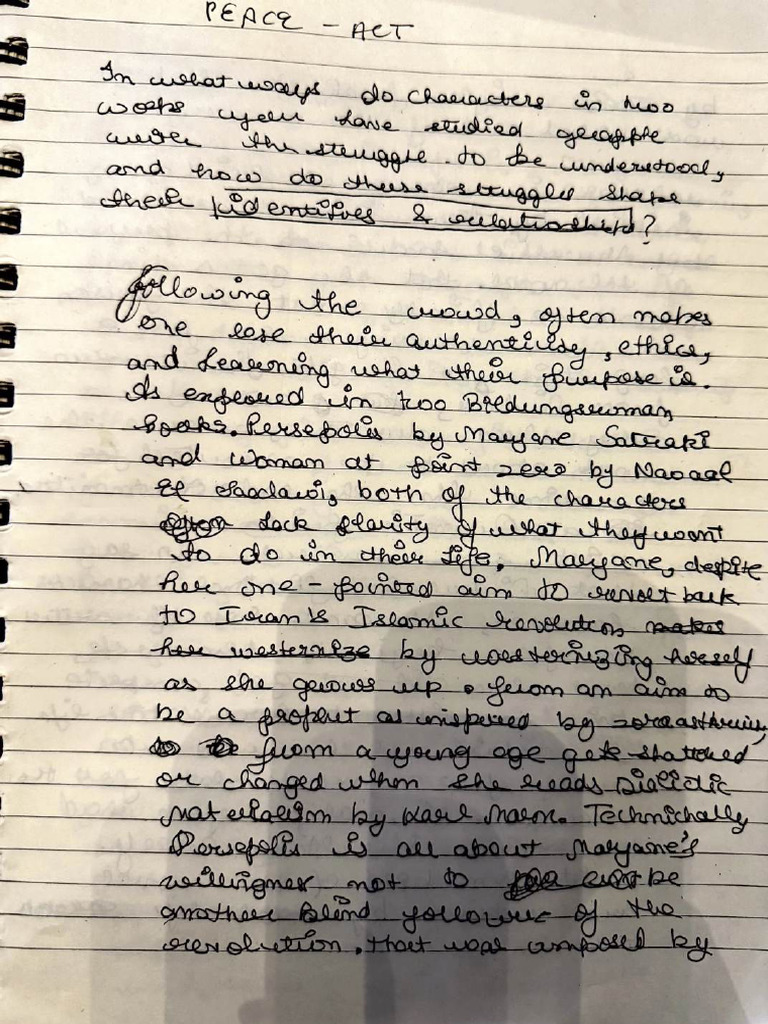 PEACE - ACT
In what ways do characters in two
works you have studied grapple
with the struggle to be understood,
and how do these struggles shape
their identities & relationships?
Following the crowd, often makes
one lose their authenticity, ethics,
and learning what their purpose is.
As explored in two Bildungsroman
books. Persepolis by Marjane Satraki
and Woman at point zero by Nawaal
El Saadawi, both of the characters
lack clarity of what they want
to do in their life. Maryane, despite
her one-pointed aim to revolt back
to Iran's Islamic revolution makes
her westernize by westernizing herself
as she grows up. from an aim to
be a prophet as inspired by
from a young age gets shattered
or changed when she reads Dialictic
Materialism by Karl Marx. Technichally
Persepolis is all about Maryane's
willingness not to be
another blind follower of the
revolution. that was imposed by